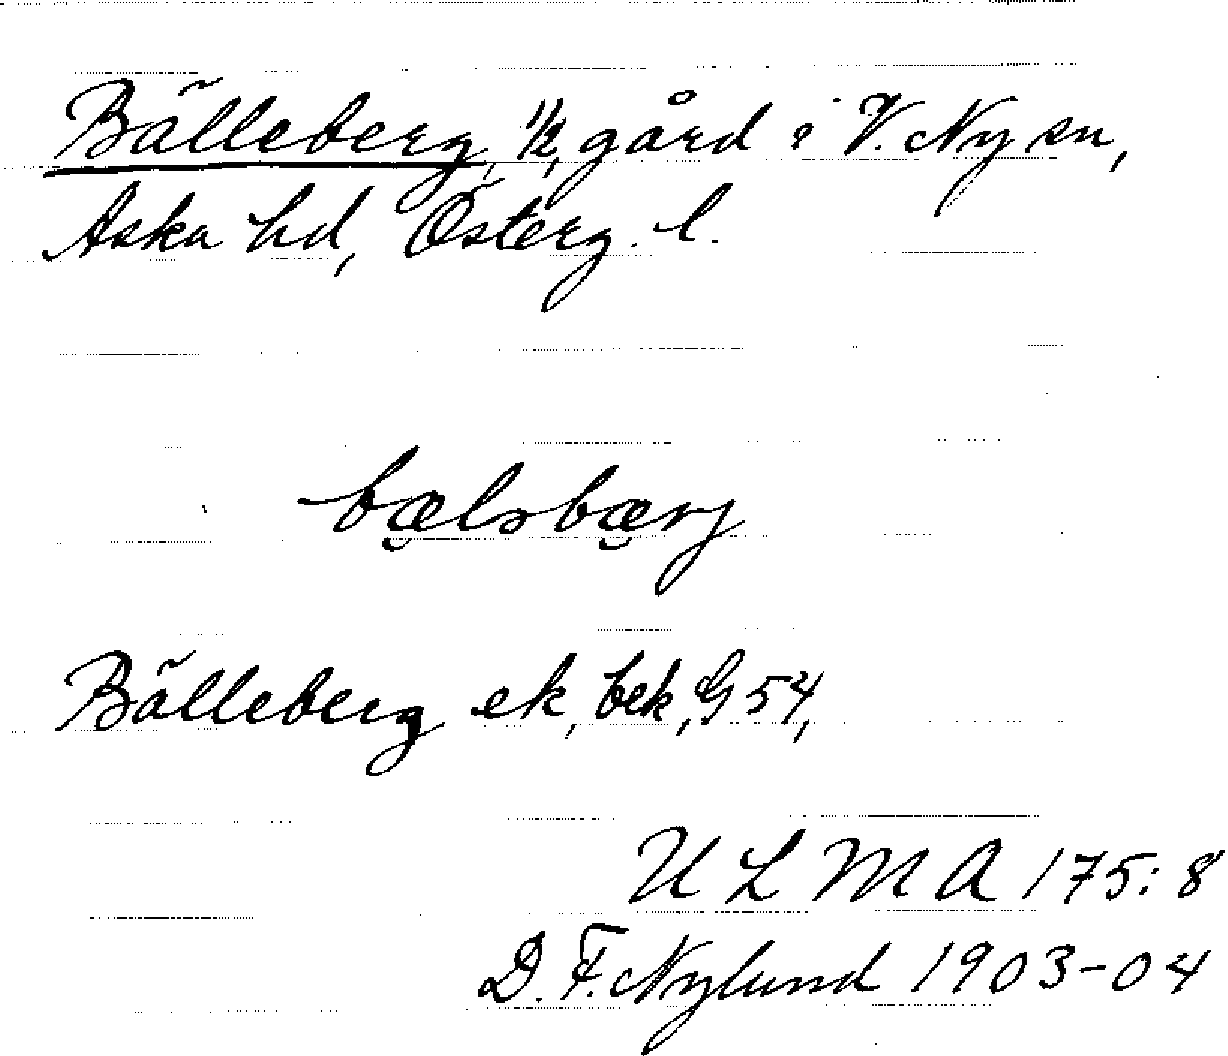 Bälleberg, 1/2, gård i V. Ny sn,
Aska hd, Österg. l.
bælsbærj
Bälleberg ek, bek, G 54,
U L M A 175: 8
D. F. Nylund 1903-04